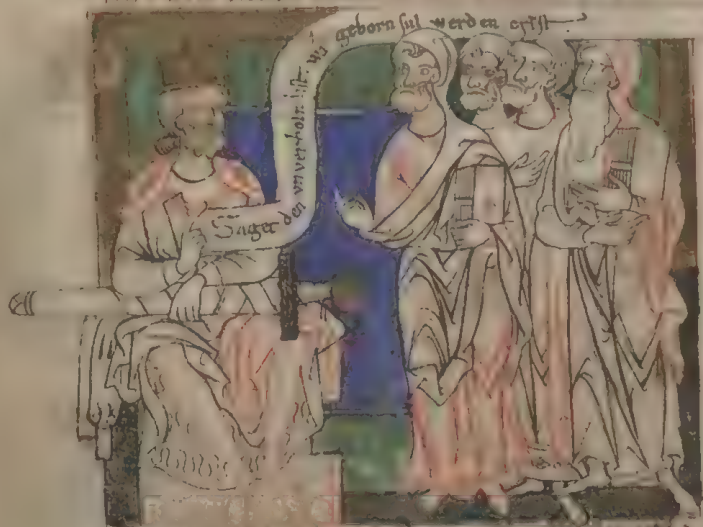 Saget den vnverholn list wa geborn sul werden crist